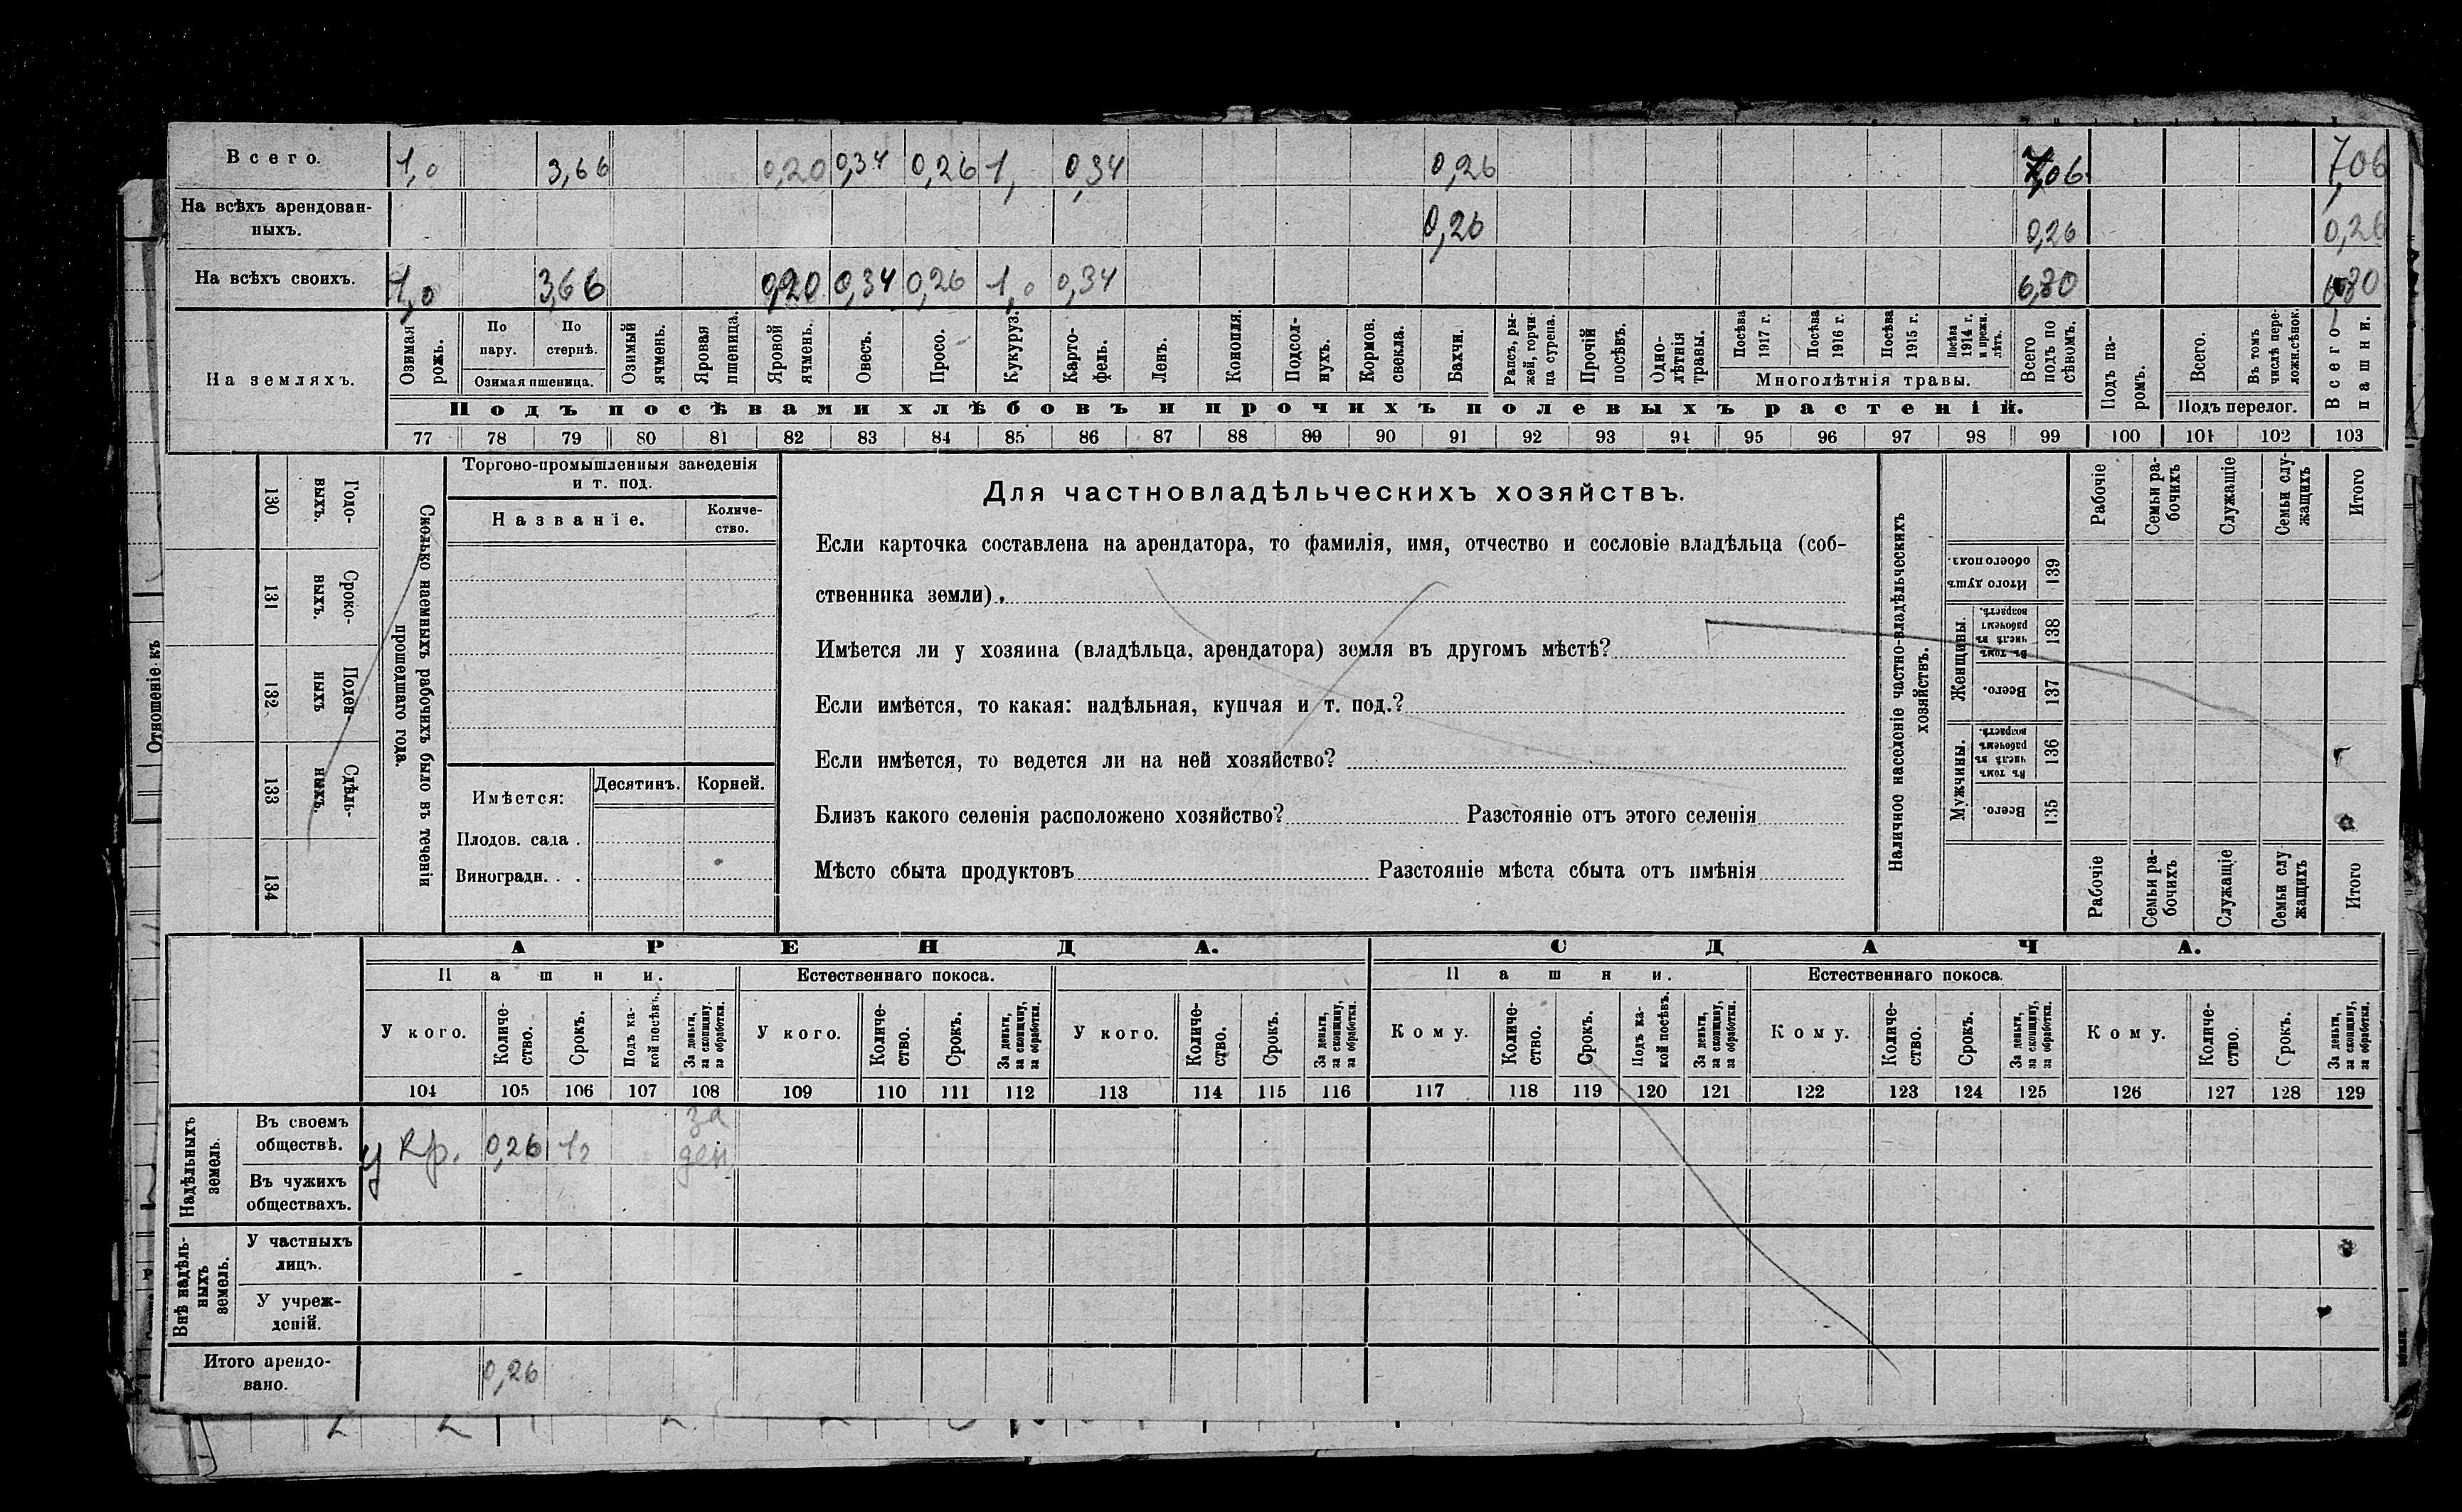 Всего. 1,0 3,66 0,20 0,34 0,26 1, 0,34 0,26 7,06 7,06
На всѣхъ арендован-
ныхъ. 0,26 0,26 0,26
На всѣхъ своихъ. 1,0 3,66 0,20 0,34 0,26 1,0 0,34 6,80 6,80
На земляхъ.
Озимая рожь.
По пару.
По стернѣ.
Озимая пшеница.
Озимый ячмень.
Яровая пшеница.
Яровой ячмень.
Овесъ.
Просо.
Кукуруз.
Карто-
фель.
Ленъ.
Конопля.
Подсол-
нухъ.
Кормов. свекла.
Бахчи.
Рапсъ, ры-
жей, горчи-
ца сурепа.
Прочій посѣвъ.
Одно-
лѣтнія травы.
Посѣва 1917 г.
Посѣва 1916 г.
Посѣва 1915 г.
Посѣва 1914 г. и прежн. лѣтъ.
Многолѣтнія травы.
Всего подъ по
сѣвомъ.
Подъ па-
ромъ.
Всего.
Въ томъ числѣ пере-
ложн.сѣнок.
Подъ перелог.
Всего пашни.
Подъ посѣвами хлѣбовъ и прочихъ полевыхъ растеній.
77 78 79 80 81 82 83 84 85 86 87 88 89 90 91 92 93 94 95 96 97 98 99 100 101 102 103
130 Годо-
выхъ.
131 Сроко-
выхъ.
132 Поден-
ныхъ
133 Сдѣль-
ныхъ.
134
Сколько наемныхъ рабочихъ было въ теченіи
прошедшаго года.
Торгово-промышленныя заведенія
и т. под.
Названіе.
Количе-
ство.
Имѣется:
Десятинъ. Корней.
Плодов. сада .
Виноградн. . .
Для частновладѣльческихъ хозяйствъ.
Если карточка составлена на арендатора, то фамилія, имя, отчество и сословіе владѣльца (соб-
ственника земли).
Имѣется ли у хозяина (владѣльца, арендатора) земля въ другомъ мѣстѣ?
Если имѣется, то какая: надѣльная, купчая и т. под.?
Если имѣется, то ведется ли на ней хозяйство?
Близъ какого селенія расположено хозяйство? Разстояніе отъ этого селенія
Мѣсто сбыта продуктовъ Разстояніе мѣста сбыта отъ имѣнія
Наличное населеніе частно-владѣльческихъ
хозяйствъ.
Рабочіе
Семьи ра-
бочихъ
Служащіе
Семьи слу-
жащихъ
Итого
Итого душъ обоего пола. 139
Женщины.
Въ томъ числѣ въ рабочемъ возрастѣ. 138
Всего. 137
Мужчины.
Въ томъ числѣ въ рабочемъ возрастѣ. 136
Всего. 135
Рабочіе
Семьи ра-
бочихъ
Служащіе
Семьи слу
жащихъ
Итого
Отношеніе къ
АРЕНДА. СДАЧА.
Пашни. Естественнаго покоса. Пашни. Естественнаго покоса.
У кого.
Количе-
ство.
Срокъ.
Подъ ка-
кой посѣвъ.
За деньги, за скопщину, за обработки.
У кого.
Количе-
ство.
Срокъ.
За деньги, за скопщину, за обработки.
У кого.
Количе-
ство.
Срокъ.
За деньги, за скопщину, за обработки.
Кому.
Количе-
ство.
Срокъ.
Подъ ка-
кой посѣвъ.
За деньги, за скопщину, за обработки.
Кому.
Количе-
ство.
Срокъ.
За деньги, за скопщину, за обработки.
Кому.
Количе-
ство.
Срокъ.
За деньги, за скопщину, за обработки.
104 105 106 107 108 109 110 111 112 113 114 115 116 117 118 119 120 121 122 123 124 125 126 127 128 129
Надѣльныхъ
земель.
Въ своемъ
обществѣ. у Кр. 0,26 1г за
ден
Въ чужихъ
обществахъ.
Внѣ надѣль-
ныхъ
земель.
У частныхъ
лицъ.
У учреж-
деній.
Итого арендо-
вано. 0,26